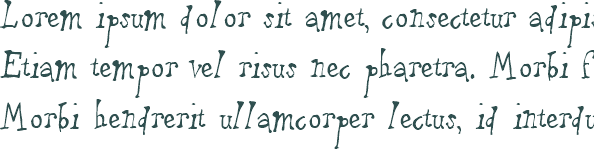 Lorem ipsum dolor sit amet, consectetur adipis
Etiam tempor vel risus nec pharetra. Morbi f
Morbi hendrerit ullamcorper lectus, id interdu